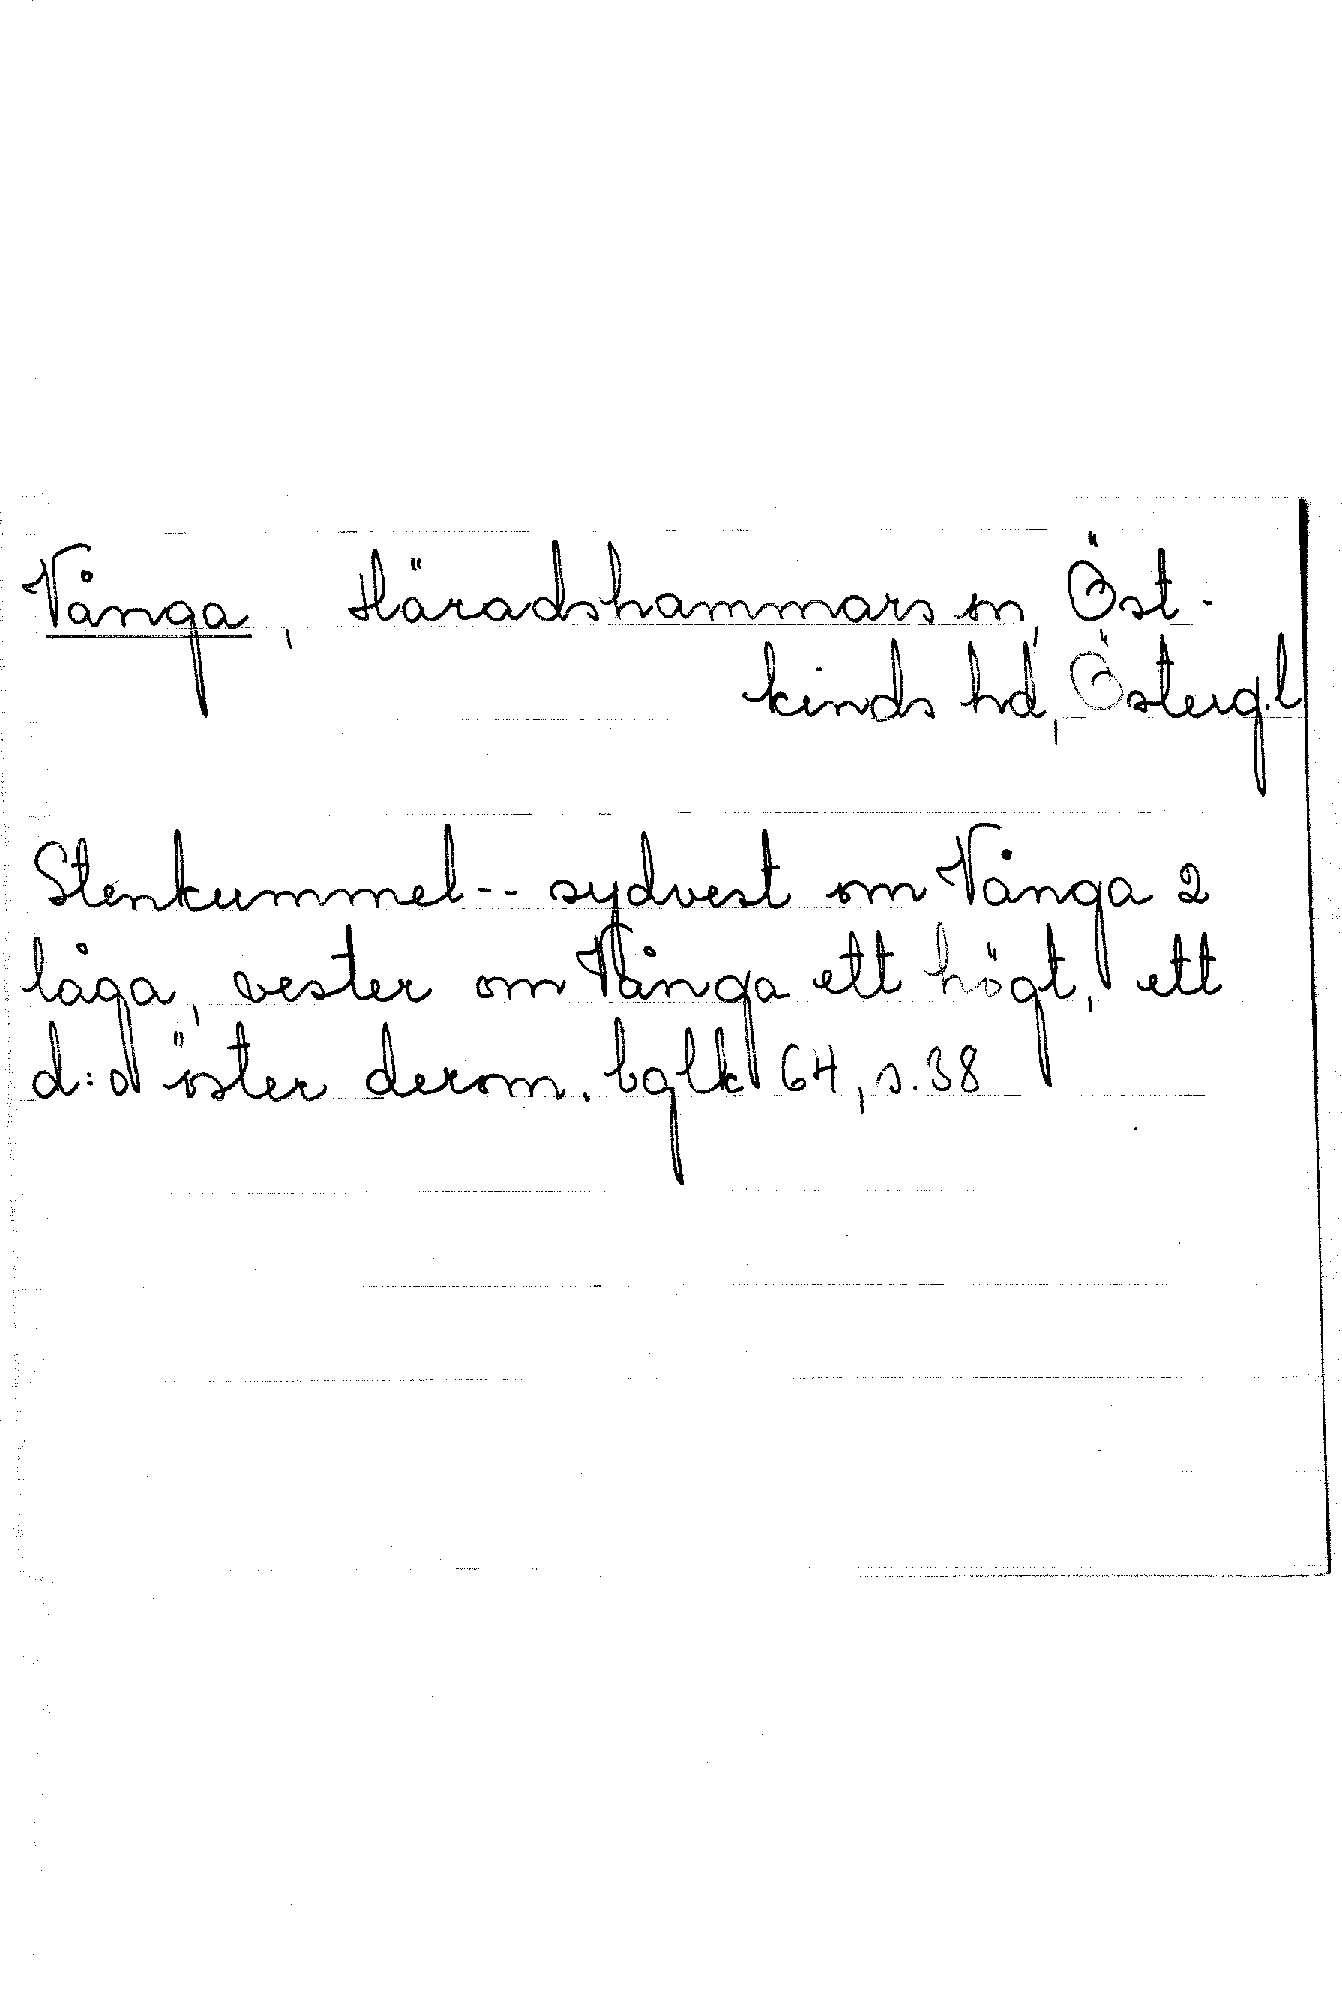 Vånga, Häradshammars sn, Öst-
kinds hd, Östergl
Stenkummel -- sydvest om Vånga 2
låga, vester om Vånga ett högt, ett
d:o öster derom. bglk 64, s. 38